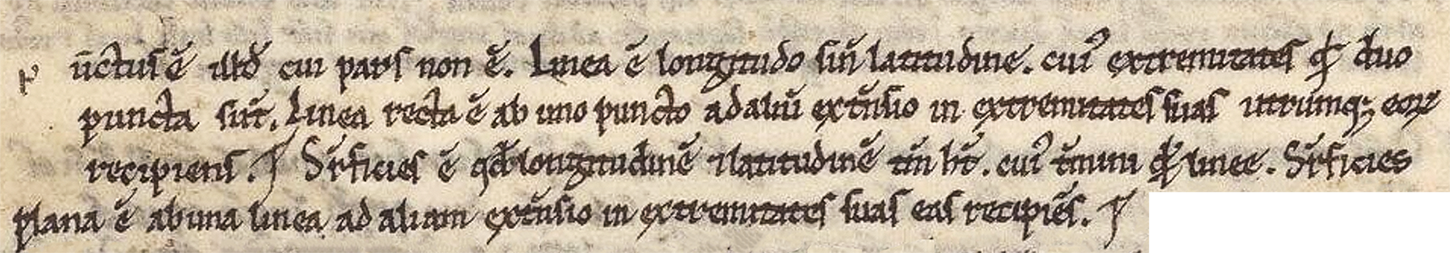 p ūctus ē illd̄ cui pars non ē. Linea ē longitudo sin̄ latitudine. cui᷒ extremitates q̄ duo
puncta sūt. Linea recta ē ab uno puncto ad aliū extn̄sio in extremitates suas utrumq; eoꝝ
recipiens. ¶ Sr̄ficies ē qd̄ longitudinē ⁊ latitudinē tm̄ ht̄. cui᷒ tm̄ini q̄ linee. Sr̄ficies
plana ē ab una linea ad aliam extn̄sio in extremitates suas eas recipiēs. ¶